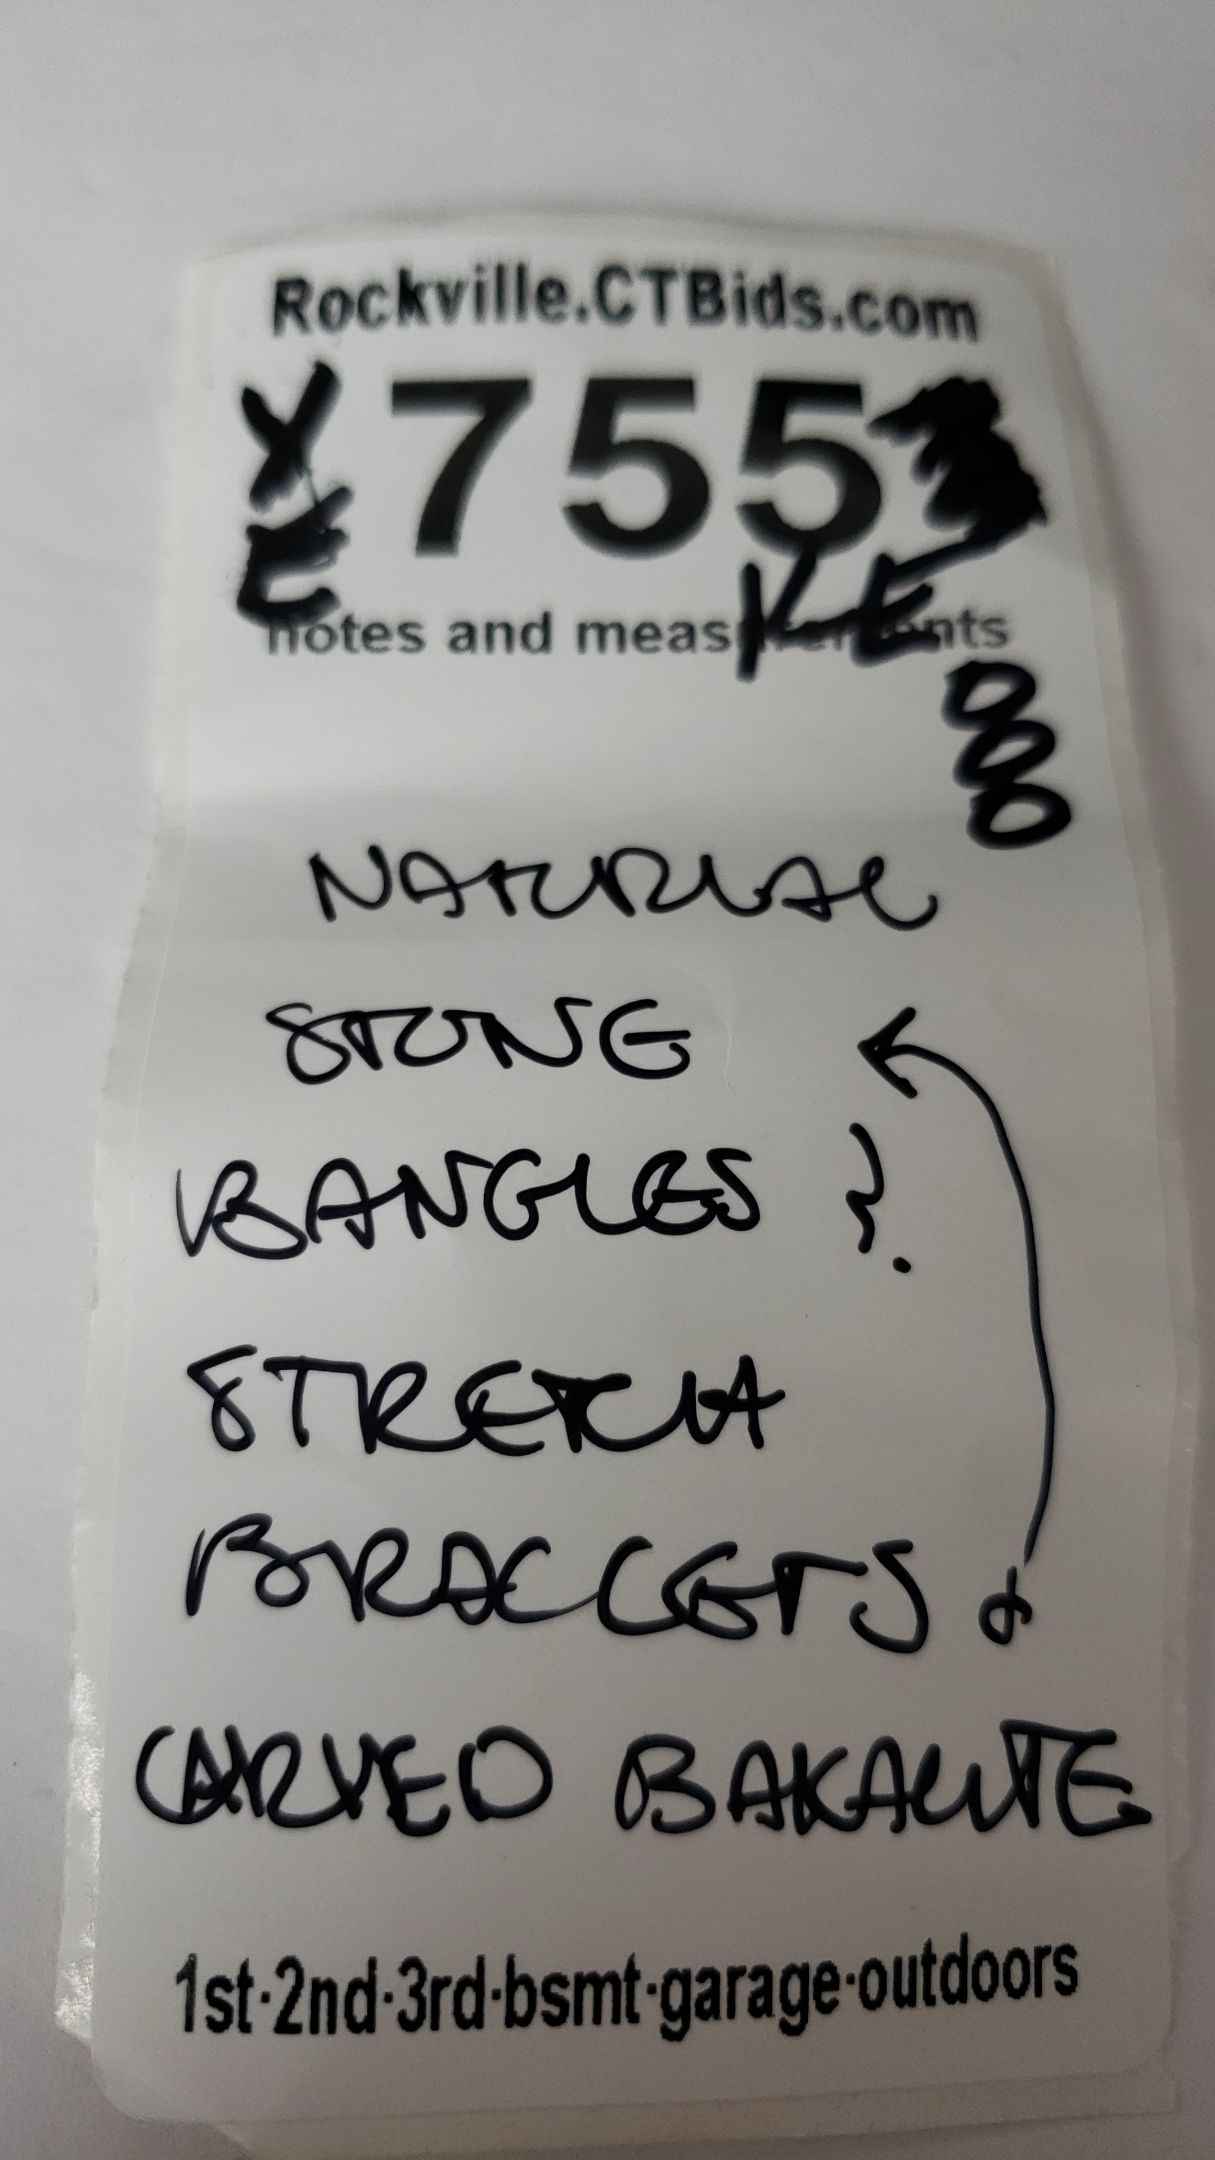 Rockville.CTBids.com
X 755
E KE
notes and measurements
000
NATURAL
STONE
BANGLES ?
STRETCH
BRACLETS &
CARVED BAKALITE
1st·2nd·3rd·bsmt·garage·outdoors